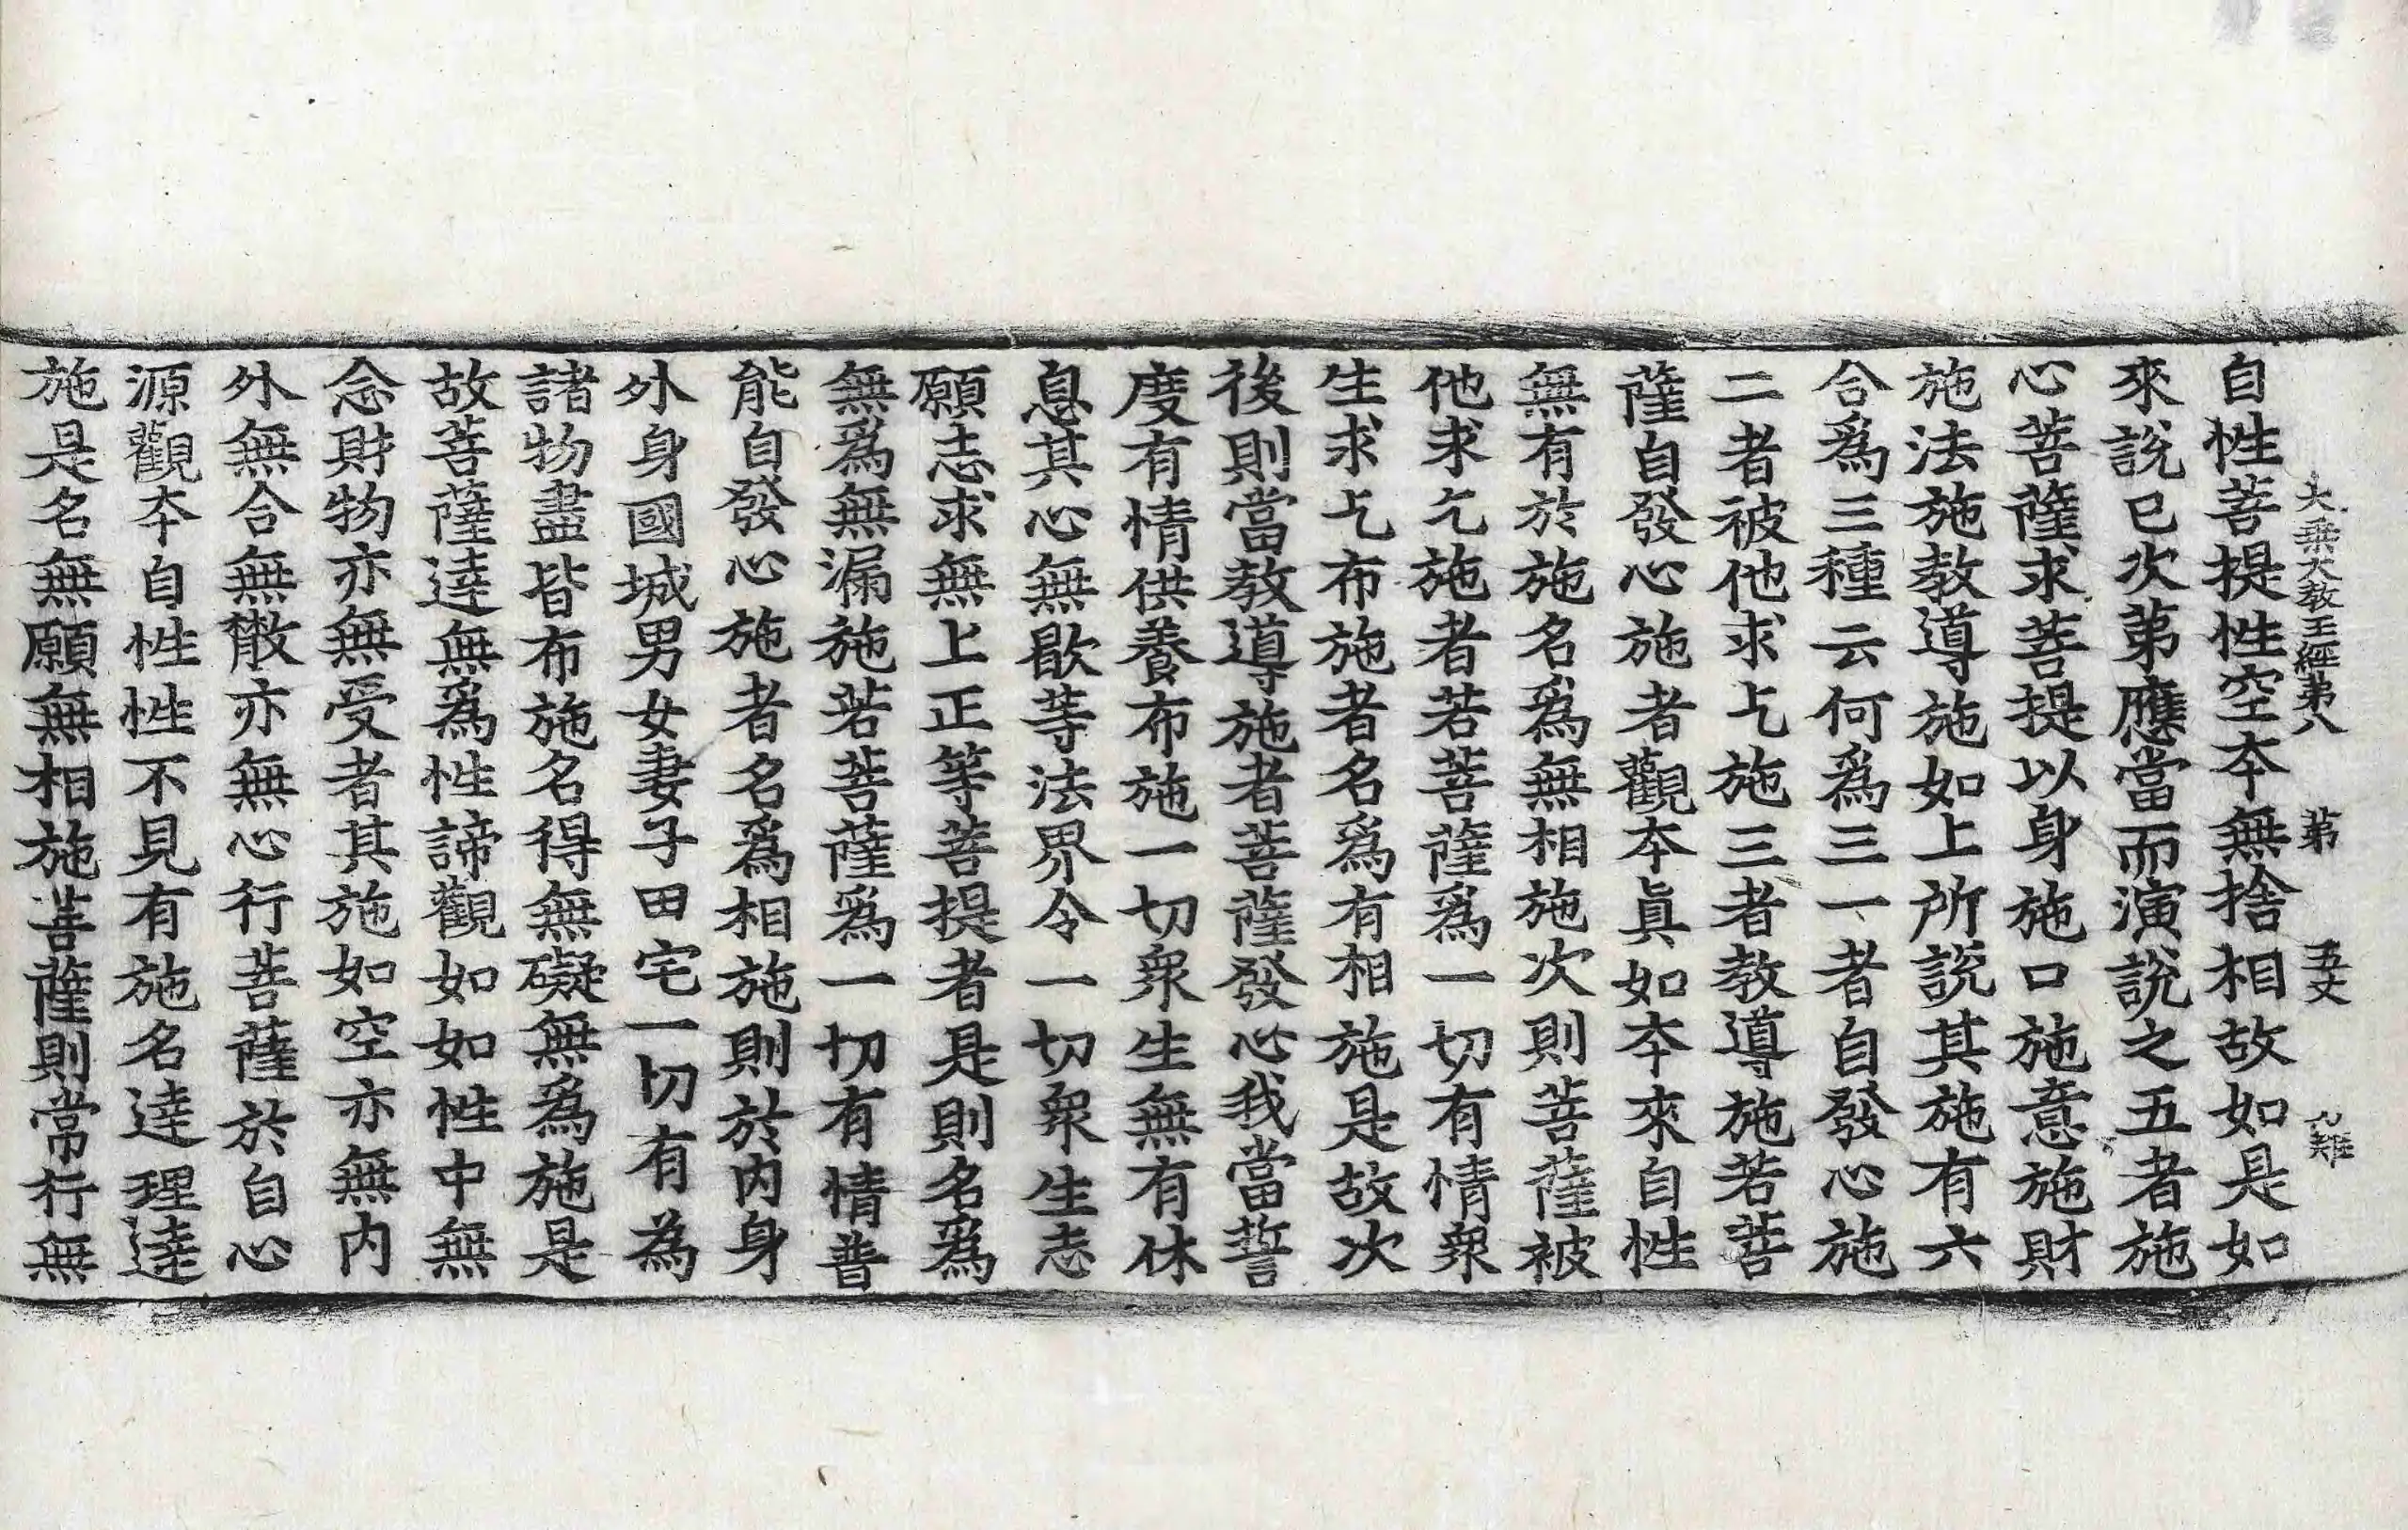 大乘大教王經第八　第　五丈
自性菩提性空本無捨相故如是如
來說已次第應當而演說之五者施
心菩薩求菩提以身施口施意施財
施法施教導施如上所說其施有六
合爲三種云何爲三一者自發心施
二者被他求乞施三者教導施若菩
薩自發心施者觀本眞如本來自性
無有於施名爲無相施次則菩薩被
他求乞施者若菩薩爲一切有情衆
生求乞布施者名爲有相施是故次
後則當教導施者菩薩發心我當誓
度有情供養布施一切衆生無有休
息其心無歇等法界令一切衆生志
願志求無上正等菩提者是則名爲
無爲無漏施若菩薩爲一切有情普
能自發心施者名爲相施則於內身
外身國城男女妻子田宅一切有為
諸物盡皆布施名得無礙無爲施是
故菩薩達無爲性諦觀如如性中無
念財物亦無受者其施如空亦無內
外無合無散亦無心行菩薩於自心
源觀本自性性不見有施名達理達
施是名無願無相施菩薩則常行無